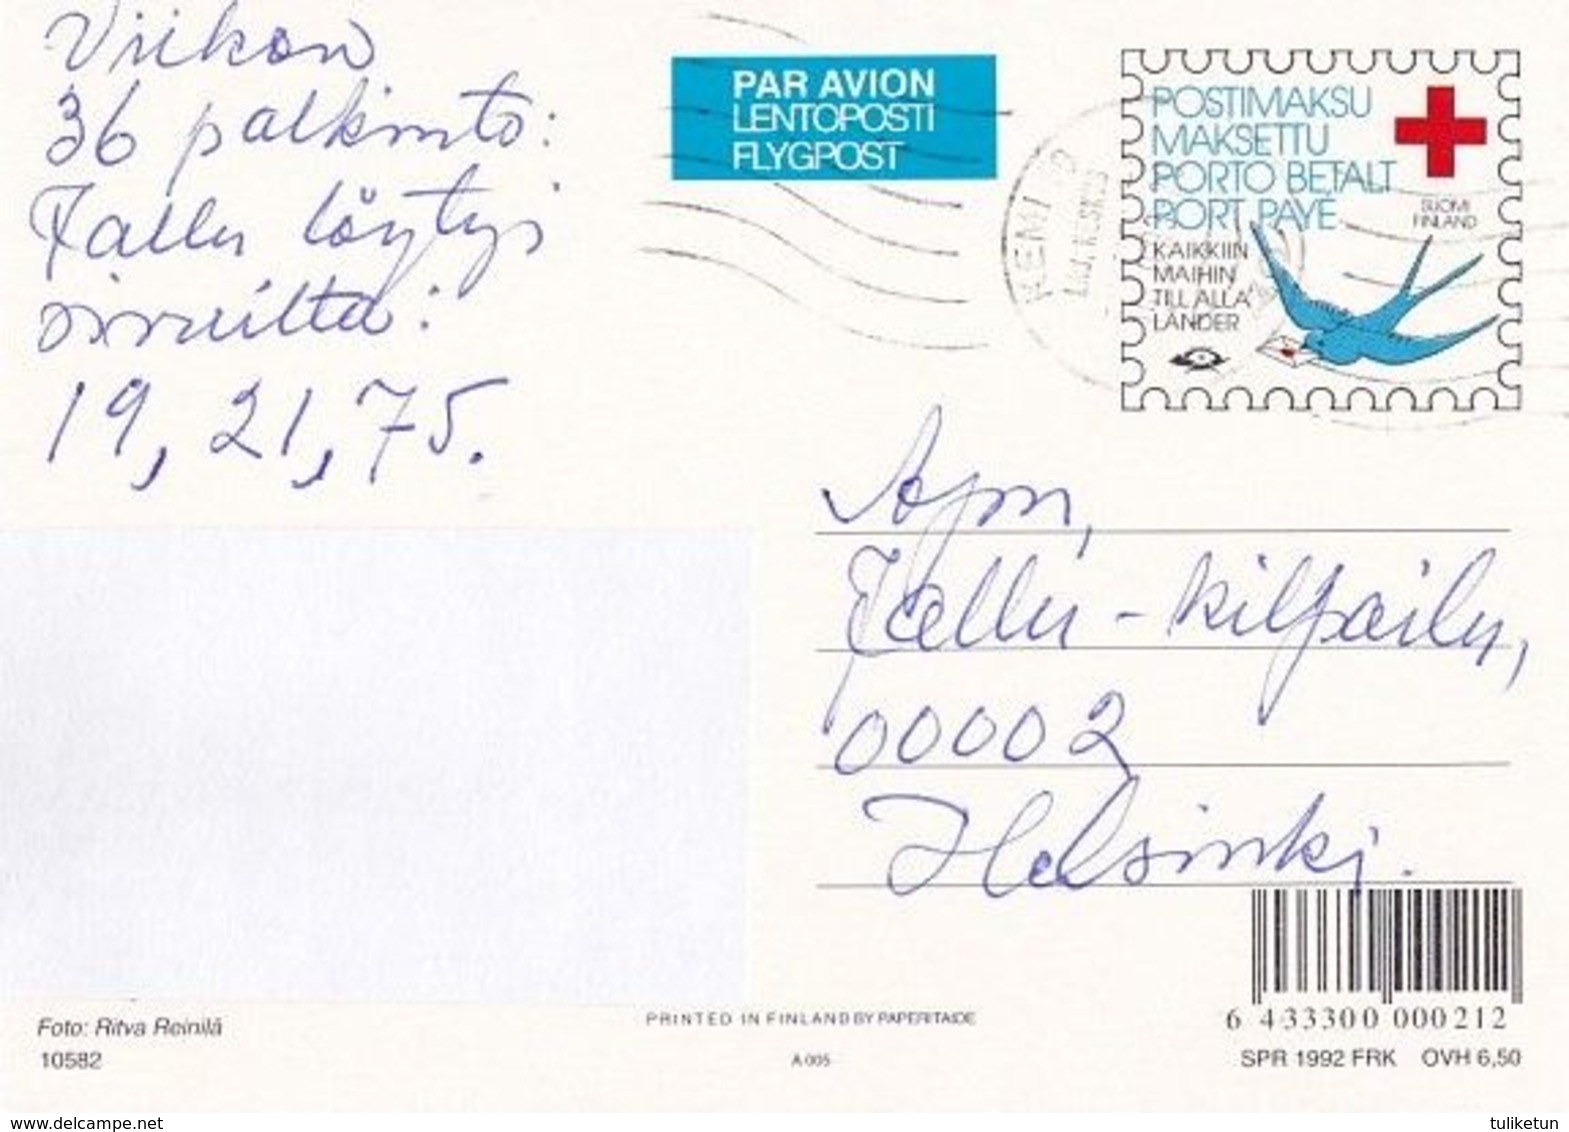 Viikon
36 palkinto:
Jallu löytyi
sivuilta:
19, 21, 75.
PAR AVION
LENTOPOSTI
FLYGPOST
POSTIMAKSU
MAKSETTU
PORTO BETALT
PORT PAYÉ
SUOMI
FINLAND
KAIKKIIN
MAIHIN
TILL ALLA
LÄNDER
KEMI
Apu,
Jallu-kilpailu,
00002
Helsinki.
Foto: Ritva Reinilä
10582
PRINTED IN FINLAND BY PAPERITAIDE
A 005
6 433300 000212
SPR 1992 FRK OVH 6,50
www.delcampe.net
tuliketun